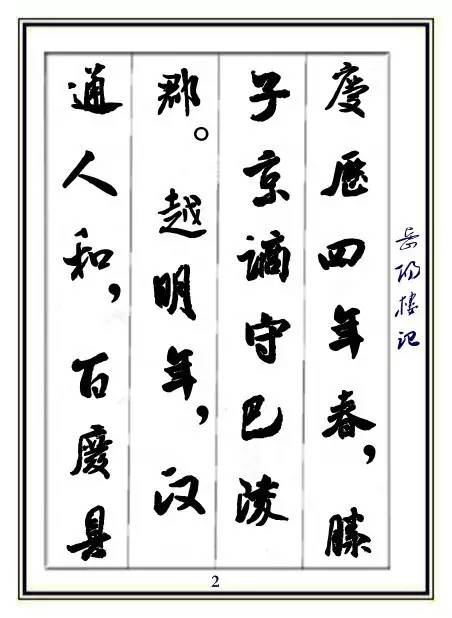 慶历四年春，滕
子京谪守巴陵
郡。越明年，汉
通人和，百廢具
岳阳楼记
2